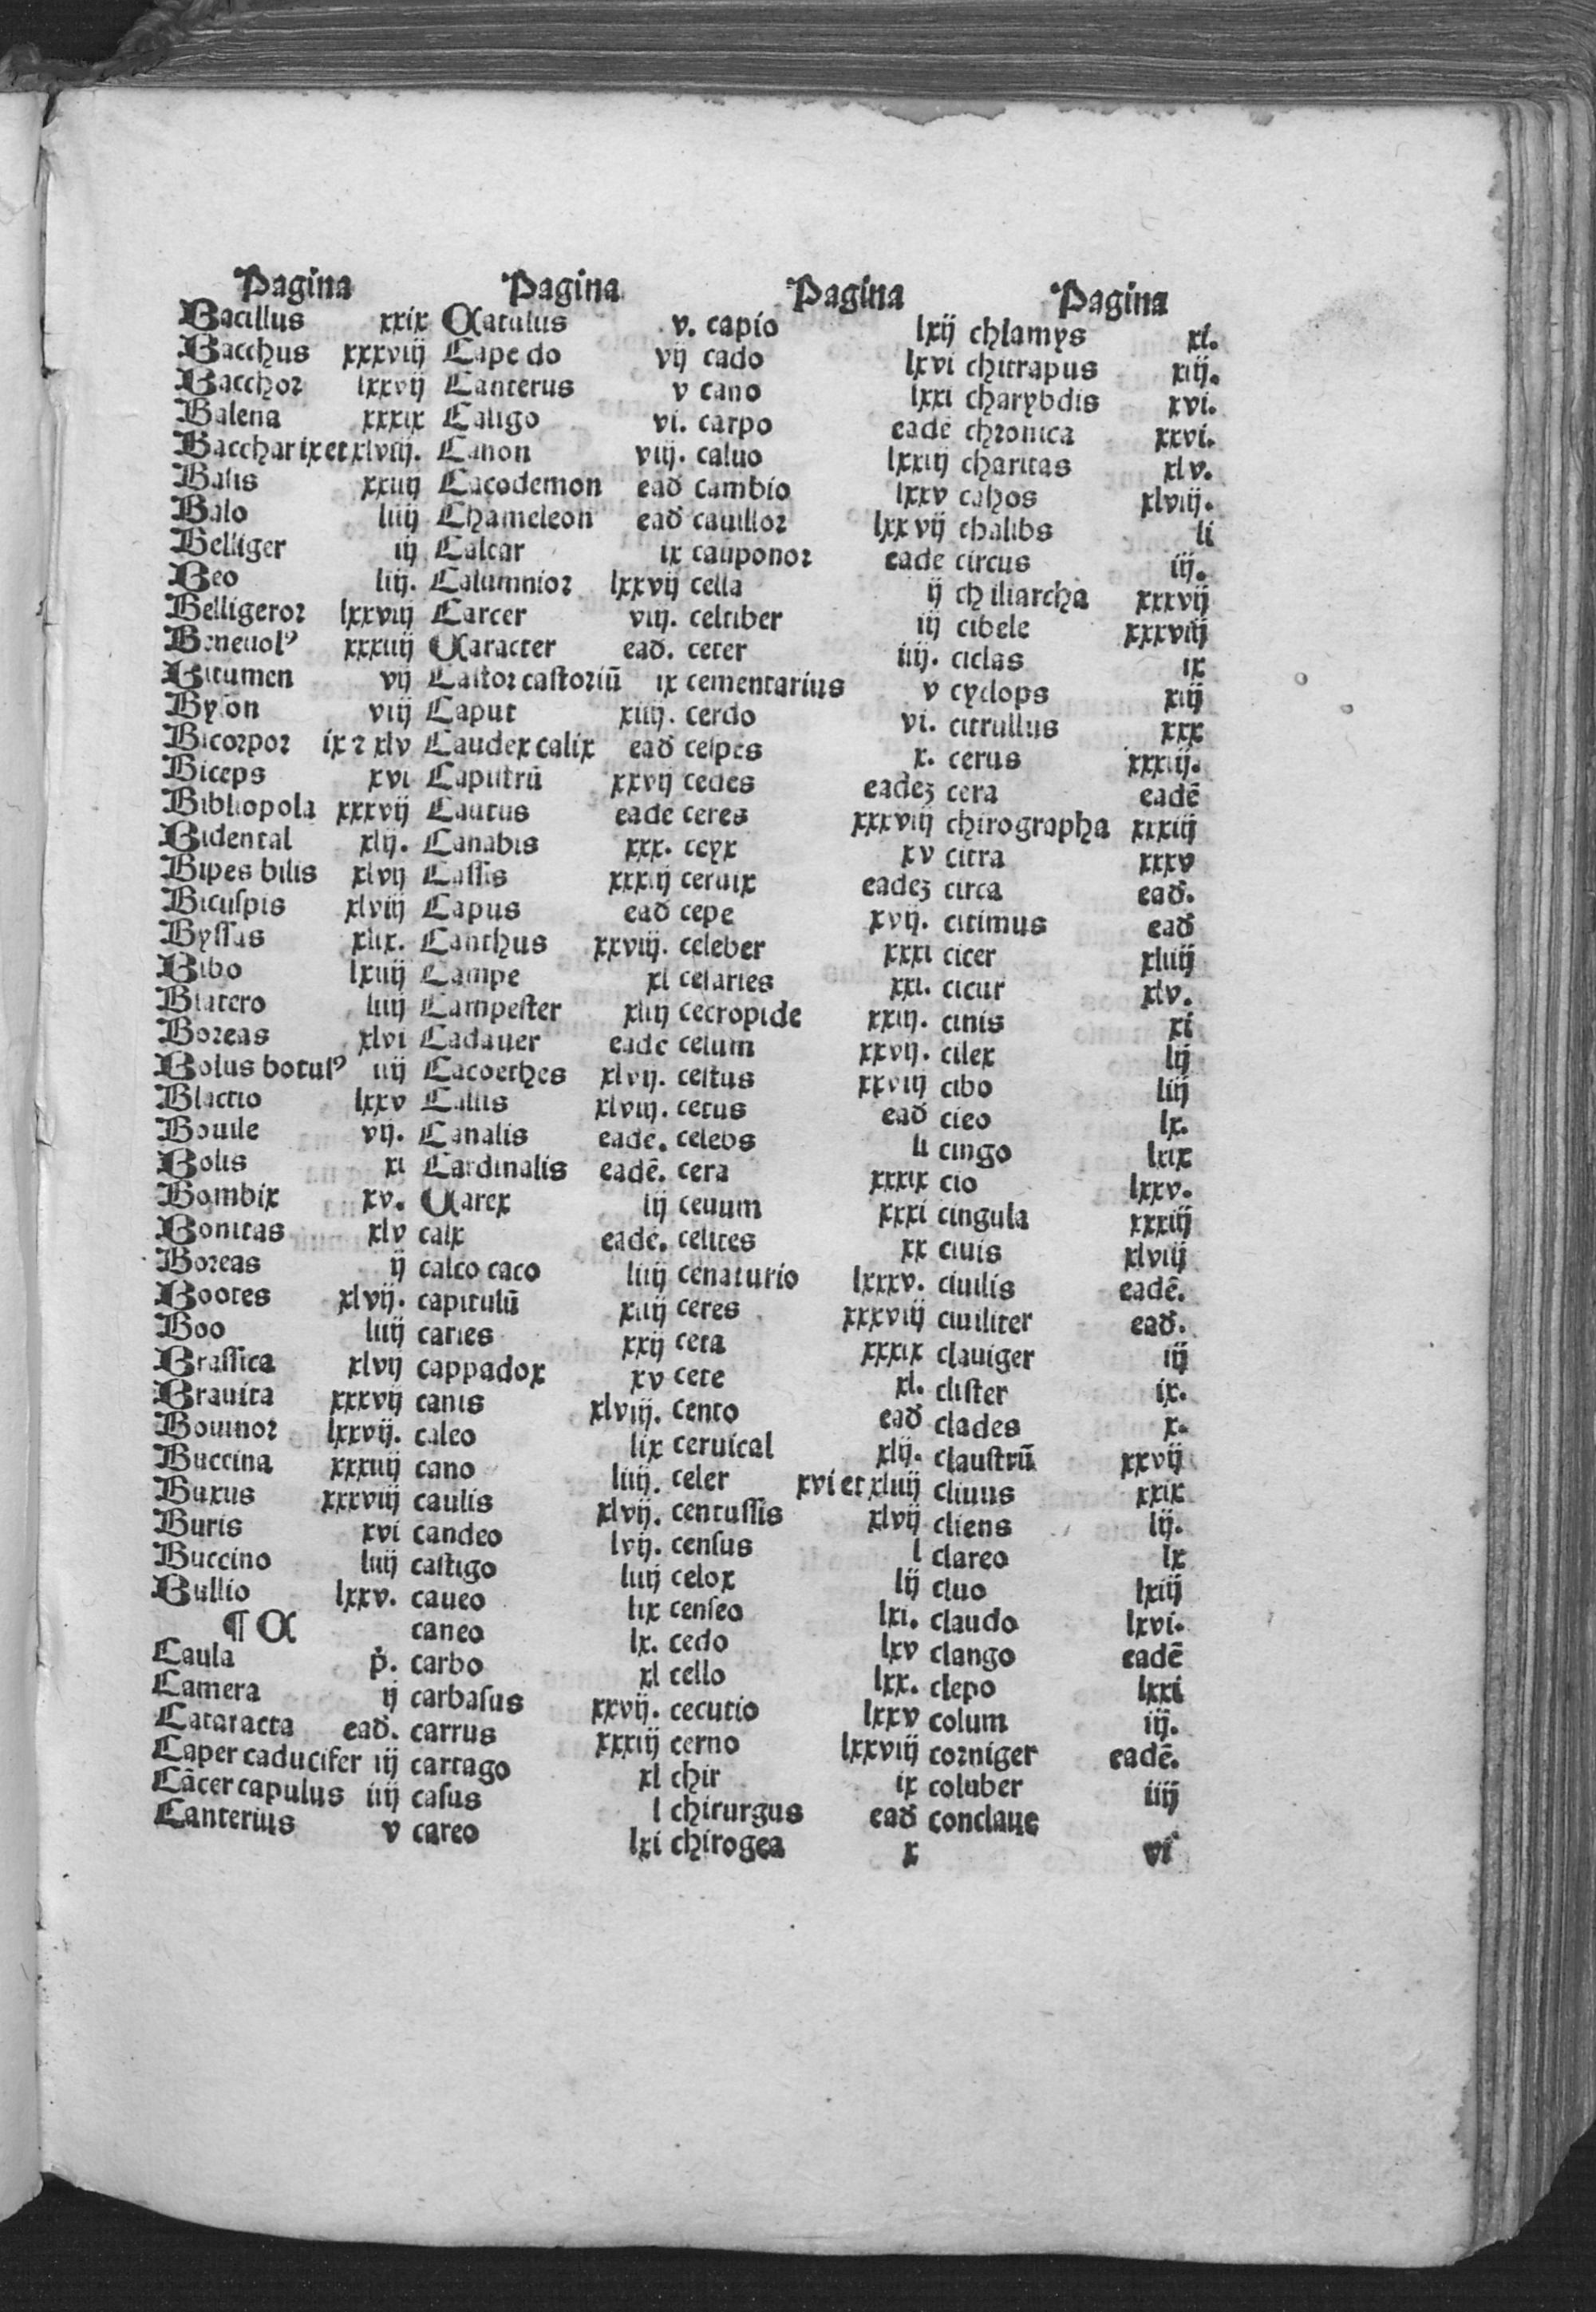 Pagina
Bacillus xxix
Bacchus xxxviij
Bacchoꝛ lxxvij
Balena xxxix
Bacchar ix et xlviij.
Balis xxiiij
Balo liiij
Belliger iij
Beo liij.
Belligeroꝛ lxxviij
Beneuolꝰ xxxiiij
Bitumen vij
Byson viij
Bicoꝛpoꝛ ix ⁊ xlv
Biceps xvi
Bibliopola xxxvij
Bidental xlij.
Bipes bilis xlvij
Bicuſpis xlviij
Byſſus xlix.
Bibo lxiiij
Blatero liiij
Boꝛeas xlvi
Bolus botulꝰ iiij
Blactio lxxv
Bouile vij.
Bolis xi
Bombix xv.
Bonitas xlv
Boꝛeas ij
Bootes xlvij.
Boo liiij
Braſſica xlvij
Brauita xxxvij
Bouinoꝛ lxxvij.
Buccina xxxiiij
Buxus xxxviij
Buris xvi
Buccino liiij
Bullio lxxv.
¶ C
Caula p̄.
Camera ij
Cataracta ead.
Caper caducifer iij
Cācer capulus iiij
Canterius v
Pagina
Catulus v.
Capedo vij
Canterus v
Caligo vi.
Canon viij.
Cacodemon ead
Chameleon ead
Calcar ix
Calumnioꝛ lxxvij
Carcer viij.
Caracter ead.
Caſtoꝛ caſtoriū ix
Caput xiiij.
Caudex calix ead
Caputrū xxvij
Cautus eade
Canabis xxx.
Caſſis xxxiij
Capus ead
Canthus xxviij.
Campe xl
Campeſter xliij
Cadauer eade
Cacoethes xlvij.
Callis xlviij.
Canalis eade.
Cardinalis eadē.
Carex lij
calx eade.
calco caco liiij
capitulū xiiij
caries xxij
cappadox xv
canis xlviij.
caleo lix
cano liiij.
caulis xlvij.
candeo lvij.
caſtigo liiij
caueo lix
caneo lx.
carbo xl
carbaſus xxvij.
carrus xxxiij
cartago xl
caſus l
careo lxi
Pagina
capio lxij
cado lxvi
cano lxxi
carpo eadē
caluo lxxiij
cambio lxxv
cauilloꝛ lxxvij
cauponoꝛ eade
cella ij
celtiber iij
ceter iiij.
cementarius v
cerdo vi.
ceſpes x.
cedes eadeʒ
ceres xxxviij
ceyx xv
ceruix eadeʒ
cepe xvij.
celeber xxxi
ceſaries xxi.
cecropide xxiij.
celum xxvij.
ceſtus xxviij
cetus ead
celebs li
cera xxxix
ceuum xxxi
celites xx
cenaturio lxxxv.
ceres xxxviij
ceta xxxix
cete xl.
cento ead
ceruical xlij.
celer xvi et xliiij
centuſſis xlvij
cenſus l
celox lij
cenſeo lxi.
cedo lxv
cello lxx.
cecutio lxxv
cerno lxxviij
chir ix
chirurgus ead
chirogea x
Pagina
chlamys xi.
chitrapus xiij.
charybdis xvi.
chꝛonica xxvi.
charitas xlv.
cahos xlviij.
chalibs li
circus iij.
chiliarcha xxxvij
cibele xxxviij
ciclas ix
cyclops xiij
citrullus xxx
cerus xxxiij.
cera eadē
chirographa xxxiij
citra xxxv
circa ead.
citimus ead
cicer xliiij
cicur xlv.
cinis xi
cilex lij
cibo liij
cieo lx.
cingo lxix
cio lxxv.
cingula xxxiij
ciuis xlviij
ciuilis eadē.
ciuiliter ead.
clauiger iij
cliſter ix.
clades x.
clauſtrū xxvij
cliuus xxix
cliens lij.
clareo lx
cluo lxiij
claudo lxvi.
clango eadē
clepo lxxi
colum iij.
coꝛniger eadē.
coluber iiij
conclaue vi